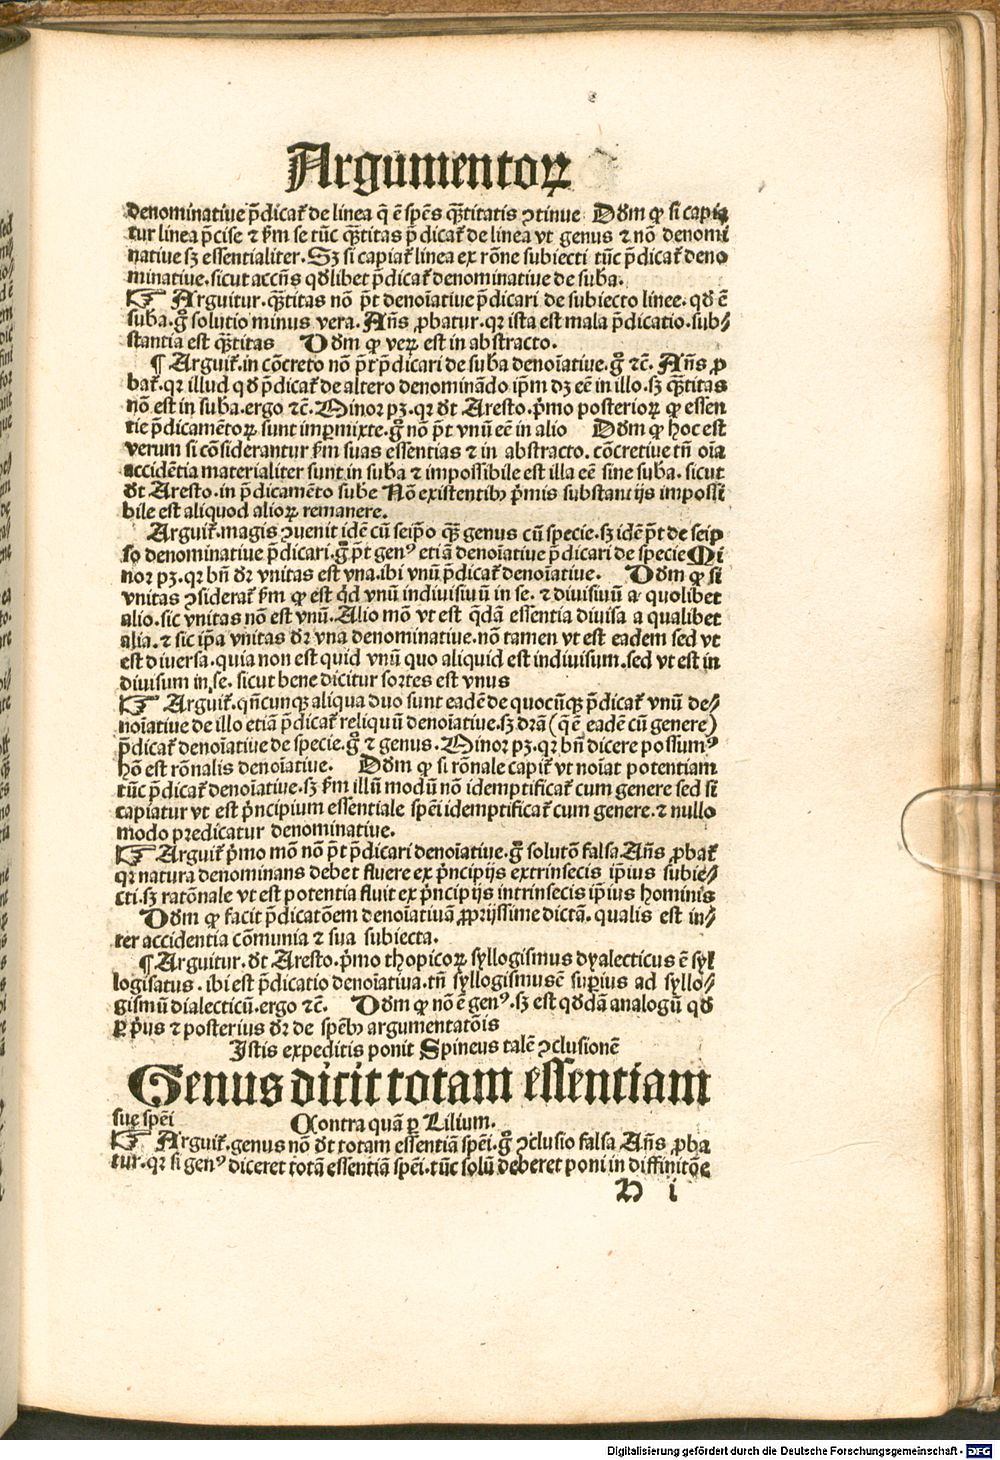 Argumentoꝝ
denominatiue p̄dicat᷑ de linea q̄ ē spēs q̄titatis ↄtinue Dōm ꝙ si capia
tur linea p̄cise ⁊ ẜm se tūc q̄titas p̄dicat᷑ de linea vt genus ⁊ nō denomi
natiue sꝫ essentialiter. Sꝫ si capiat᷑ linea ex rōne subiecti tūc p̄dicat᷑ deno
minatiue. sicut accn̄s qdlibet p̄dicat᷑ denominatiue de suba.
☞ Arguitur. q̄titas nō p̄t denoīatiue p̄dicari de subiecto linee. qd ē
suba. g̊ solutio minus vera. Añs ꝓbatur. qꝛ ista est mala p̄dicatio. sub⸗
stantia est q̄titas Dōm ꝙ veꝝ est in abstracto.
¶ Arguit᷑. in cōcreto nō p̄t p̄dicari de suba denoīatiue. g̊ ⁊c̄. Añs ꝓ
bat᷑. qꝛ illud qd p̄dicat᷑ de altero denominādo ip̄m dꝫ eē in illo. sꝫ q̄titas
nō est in suba. ergo ⁊c̄. Minor pꝫ. qꝛ dt Aresto. p̄mo posterioꝝ ꝙ essen
tie p̄dicamētoꝝ sunt imꝑmixte. g̊ nō p̄t vnū eē in alio Dōm ꝙ hoc est
verum si cōsiderantur ẜm suas essentias ⁊ in abstracto. cōcretiue tñ oīa
accidētia materialiter sunt in suba ⁊ impossibile est illa eē sine suba. sicut
dt Aresto. in p̄dicamēto sube Nō existentibꝫ p̄mis substantijs impossi
bile est aliquod alioꝝ remanere.
Arguit᷑. magis ↄuenit idē cū seip̄o q̄ꝫ genus cū specie. sꝫ idē p̄t de seip
so denominatiue p̄dicari. g̊ p̄t genꝰ etiā denoīatiue p̄dicari de specie Mi
nor pꝫ. qꝛ bñ dr̄ vnitas est vna. ibi vnū p̄dicat᷑ denoīatiue. Dōm ꝙ si
vnitas ↄsiderat᷑ ẜm ꝙ est qd vnū indiuisiuū in se. ⁊ diuisiuū a quolibet
alio. sic vnitas nō est vnū. Alio mō vt est qdā essentia diuisa a qualibet
alia. ⁊ sic ip̄a vnitas dr̄ vna denominatiue. nō tamen vt est eadem sed vt
est diuersa. quia non est quid vnū quo aliquid est indiuisum. sed vt est in
diuisum in se. sicut bene dicitur sortes est vnus
☞ Arguit᷑. qn̄cunqꝫ aliqua duo sunt eadē de quocūqꝫ p̄dicat᷑ vnū de⸗
noīatiue de illo etiā p̄dicat᷑ reliquū denoīatiue. sꝫ dr̄a (que ē eadē cū genere)
p̄dicat᷑ denoīatiue de specie. g̊ ⁊ genus. Minor pꝫ. qꝛ bn̄ dicere possumꝰ
hō est rōnalis denoīatiue. Dōm ꝙ si rōnale capit᷑ vt noīat potentiam
tūc p̄dicat᷑ denoīatiue. sꝫ ẜm illū modū nō idemptificat᷑ cum genere sed si
capiatur vt est p̄ncipium essentiale spēi idemptificat᷑ cum genere. ⁊ nullo
modo predicatur denominatiue.
☞ Arguit᷑ p̄mo mō nō p̄t p̄dicari denoīatiue. g̊ solutō falsa. Añs ꝓbat᷑
qꝛ natura denominans debet fluere ex p̄ncipijs extrinsecis ip̄ius subie⸗
cti. sꝫ ratōnale vt est potentia fluit ex p̄ncipijs intrinsecis ip̄ius hominis
Dōm ꝙ facit p̄dicatōem denoīatiuā ꝓprijssime dictā. qualis est in⸗
ter accidentia cōmunia ⁊ sua subiecta.
¶ Arguitur. dt Aresto. p̄mo thopicoꝝ syllogismus dyalecticus ē syl
logisatus. ibi est p̄dicatio denoīatiua. tñ syllogismus ē suꝑius ad syllo⸗
gismū dialecticū. ergo ⁊c̄. Dōm ꝙ nō ē genꝰ. sꝫ est qddā analogū qd
ꝑ pꝰus ⁊ posterius dr̄ de spēbꝫ argumentatōis
Istis expeditis ponit Spineus talē ↄclusionē
Genus dicit totam essentiam
sue spēi Contra quā ꝑ Lilium.
☞ Arguit᷑. genus nō dt totam essentiā spēi. g̊ ↄclusio falsa Añs ꝓba
tur. qꝛ si genꝰ diceret totā essentiā spēi. tūc solū deberet poni in diffinitōe
D i
Digitalisierung gefördert durch die Deutsche Forschungsgemeinschaft - DFG